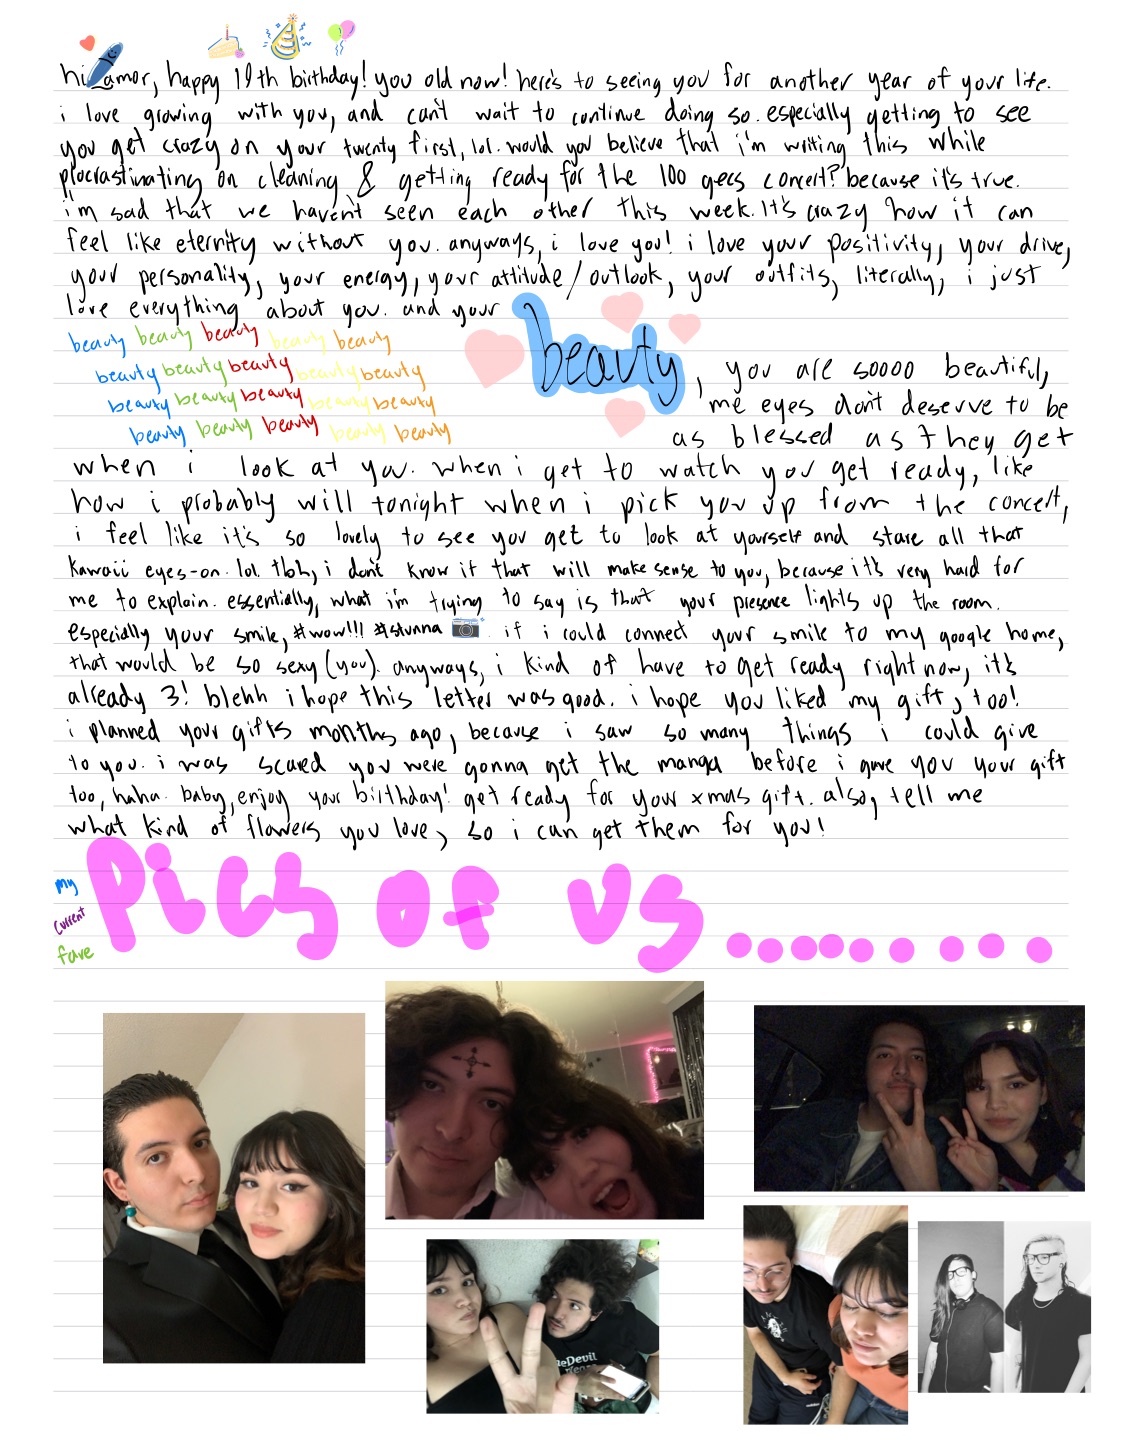 hi amor, happy 19th birthday! you old now! here's to seeing you for another year of your life.
i love growing with you, and can't wait to continue doing so. especially getting to see
you get crazy on your twenty first, lol. would you believe that i'm writing this while
procrastinating on cleaning & getting ready for the 100 gecs concert? because it's true.
i'm sad that we haven't seen each other this week. It's crazy how it can
feel like eternity without you. anyways, i love you! i love your positivity, your drive,
your personality, your energy, your attitude/outlook, your outfits, literally, i just
love everything about you. and your
beauty
beauty beauty beauty beauty beauty
beauty beauty beauty beauty beauty
beauty beauty beauty beauty beauty
beauty beauty beauty beauty beauty
, you are soooo beautiful,
me eyes don't deserve to be
as blessed as they get
when i look at you. when i get to watch you get ready, like
how i probably will tonight when i pick you up from the concert,
i feel like it's so lovely to see you get to look at yourself and stare all that
kawaii eyes-on. lol. tbh, i don't know if that will make sense to you, because it's very hard for
me to explain. essentially, what i'm trying to say is that your presence lights up the room.
especially your smile, #wow!!! #stunna 📷. if i could connect your smile to my google home,
that would be so sexy (you). anyways, i kind of have to get ready right now, it's
already 3! blehh i hope this letter was good. i hope you liked my gift, too!
i planned your gifts months ago, because i saw so many things i could give
to you. i was scared you were gonna get the manga before i gave you your gift
too, haha. baby, enjoy your birthday! get ready for your xmas gift. also, tell me
what kind of flowers you love, so i can get them for you!
my
current
fave
Pics of us.........
eDevil